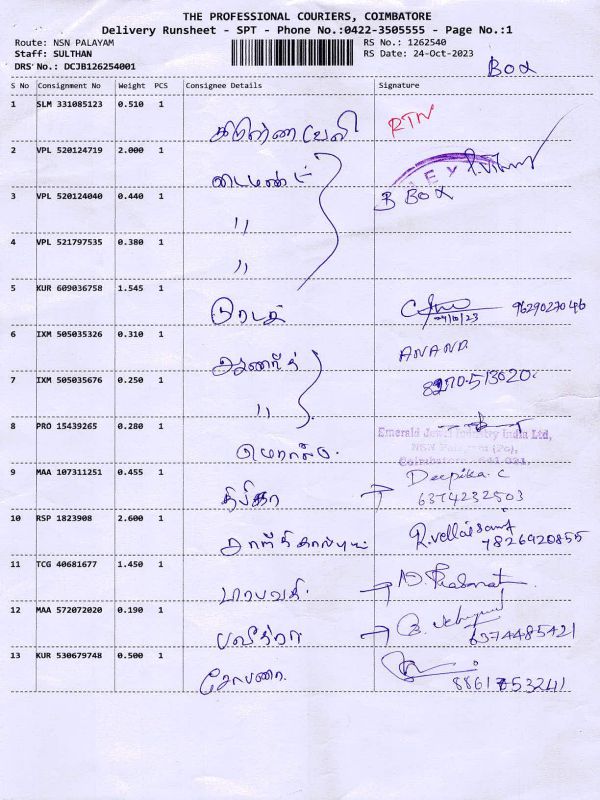 THE PROFESSIONAL COURIERS, COIMBATORE
Delivery Runsheet - SPT - Phone No.:0422-3505555 - Page No.:1
Route: NSN PALAYAM RS No.: 1262540
Staff: SULTHAN RS Date: 24-Oct-2023
DRS No.: DCJB126254001
BOX
S No Consignment No Weight PCS Consignee Details Signature
1 SLM 331085123 0.510 1
RTN
2 VPL 520124719 2.000 1
டைமண்ட்
3 VPL 520124040 0.440 1
B BOX
"
4 VPL 521797535 0.380 1
"
5 KUR 609036758 1.545 1
9629027046
24/10/23
6 IXM 505035326 0.310 1
ANAND
7 IXM 505035676 0.250 1
8270513020.
"
8 PRO 15439265 0.280 1
Emerald Jewel Industry India Ltd,
9 MAA 107311251 0.455 1
தீபிகா Deepika. C
6374232503
10 RSP 1823908 2.600 1
7826920855
11 TCG 40681677 1.450 1
12 MAA 572072020 0.190 1
பவித்ரா
6374485421
13 KUR 530679748 0.500 1
சோபனா.